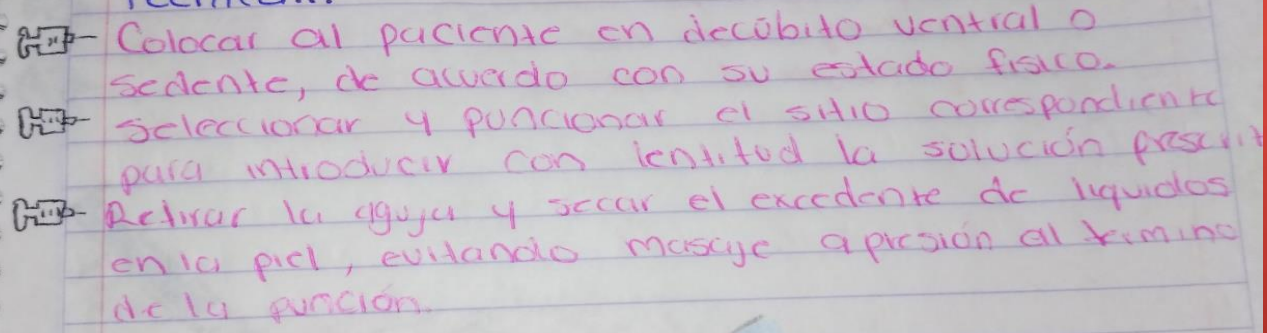 Colocar al paciente en decúbito ventral o
sedente, de acuerdo con su estado fisico.
Seleccionar y puncionar el sitio correspondiente
para introducir con lentitud la solución
Retirar la aguja y secar el excedente de liquidos
en la piel, evitando masaje a presión al termino
de la punción.